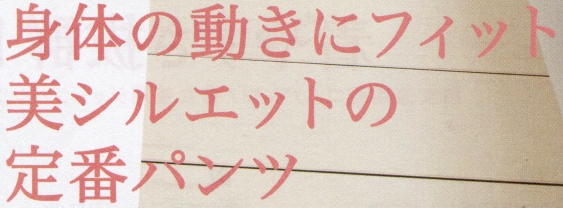 身体の動きにフィット
美シルエットの
定番パンツ